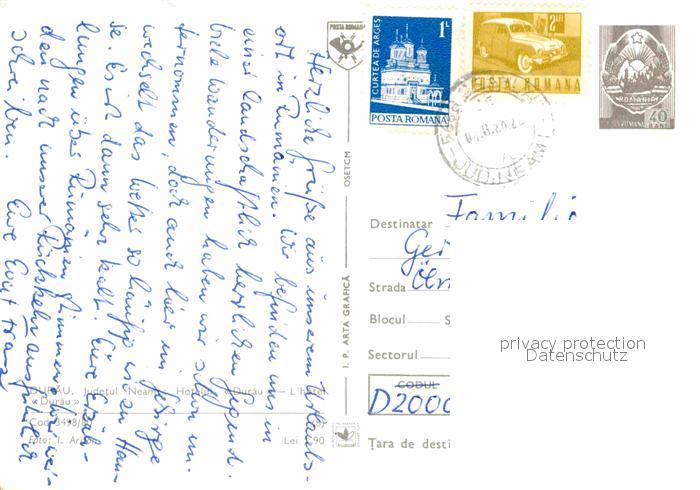 Herzliche Grüße aus unserem Urlaubs-
ort in Rumänien. Wir befinden uns in
einer landschaftlich herrlichen Gegend.
Viele Wanderungen haben wir schon un-
ternommen, doch auch hier im Gebirge
wechselt das Wetter so häufig wie zu Hau-
se. Es ist dann sehr kalt. Eure Erzäh-
lungen über Rumänien stimmen aber wer-
den nach unserer Rückkehr ausführlich
schreiben. Eure
DURĂU, Județul Neamț. Hotelul «Durău» — L'hôtel
«Durău»
Cod 3498/80
Foto: I.
Lei 1,90
I. P. ARTA GRAFICĂ
OSETCM
POSTA ROMANA
1L
CURTEA DE ARGES
POSTA ROMANA
2 LEI
POSTA ROMANA
JUD. NEAMT
ROMANIA
40
Destinatar Famili
Ger
Strada
Blocul S
Sectorul
CODUL
D2000
Țara de desti
privacy protection
Datenschutz